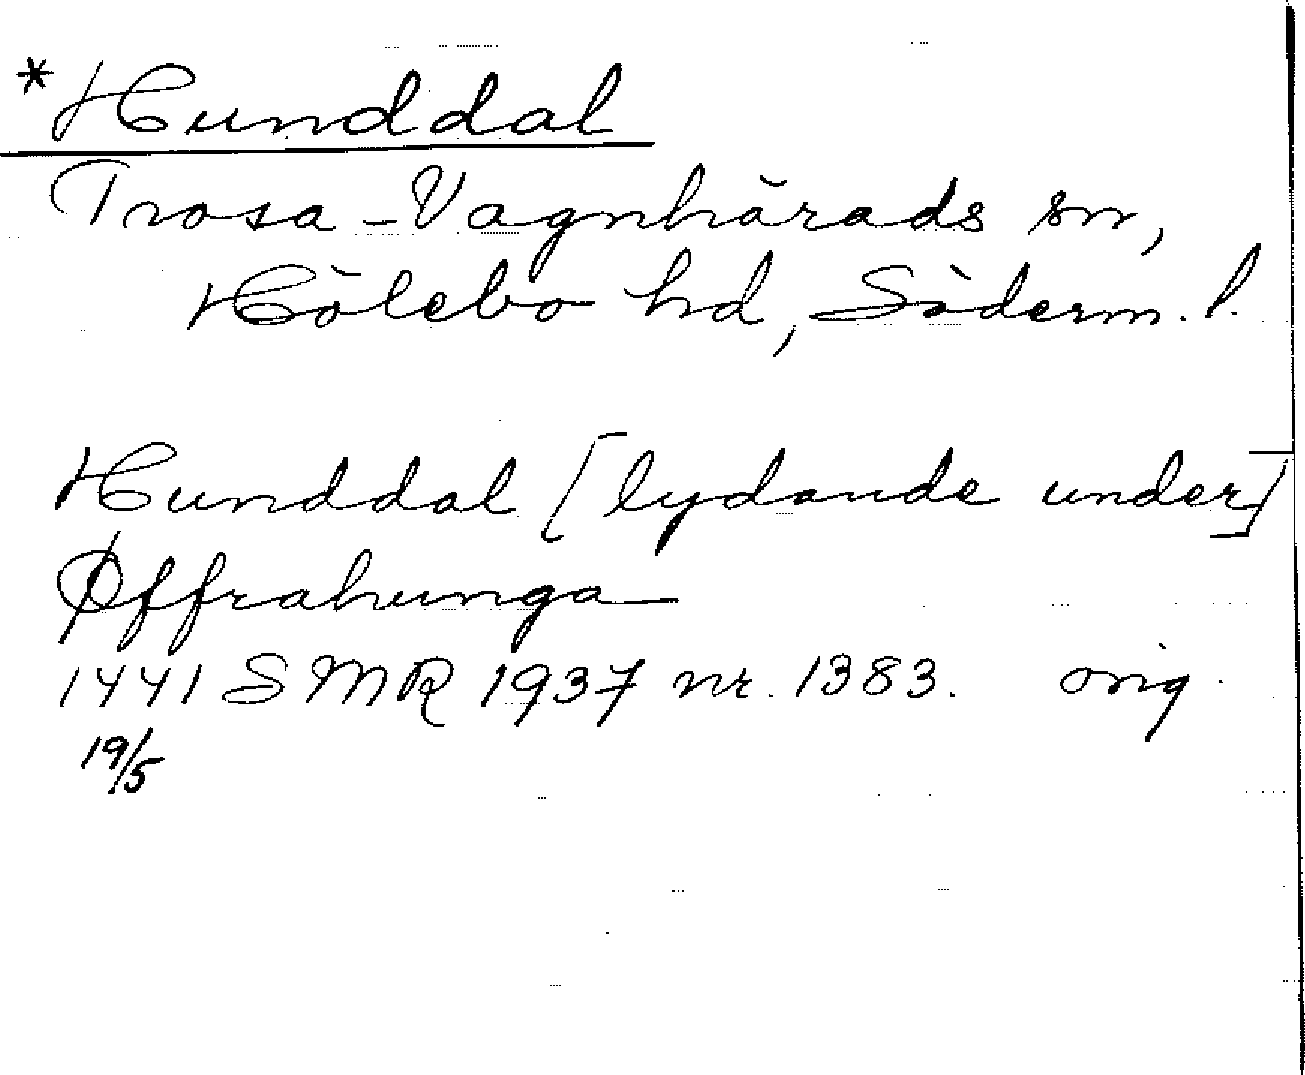 *Hunddal
Trosa-Vagnhärads sn,
Hölebo hd, Söderm. l.
Hunddal [lydande under]
Øffrahunga
1441 SMR 1937 nr. 1383. orig.
19/5